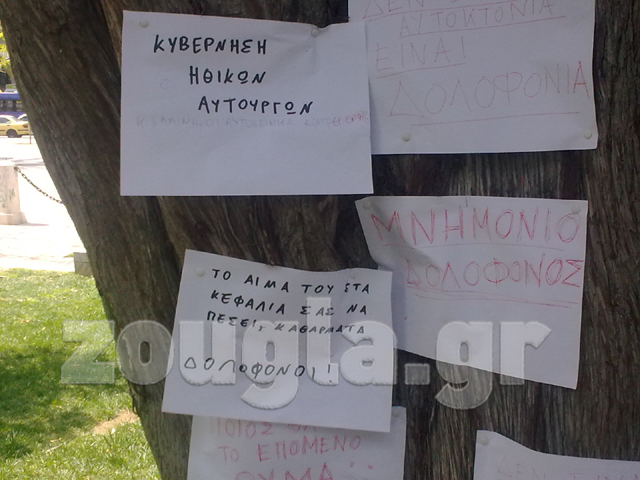 ΚΥΒΕΡΝΗΣΗ
ΗΘΙΚΩΝ
ΑΥΤΟΥΡΓΩΝ
ΔΕΝ
ΑΥΤΟΚΤΟΝΙΑ
ΕΙΝΑΙ
ΔΟΛΟΦΟΝΙΑ
ΜΝΗΜΟΝΙΟ
ΔΟΛΟΦΟΝΟΣ
ΤΟ ΑΙΜΑ ΤΟΥ ΣΤΑ
ΚΕΦΑΛΙΑ ΣΑΣ ΝΑ
ΠΕΣΕΙ, ΚΑΘΑΡΜΑΤΑ
ΔΟΛΟΦΟΝΟΙ!
zougla.gr
ΠΟΙΟΣ
ΤΟ ΕΠΟΜΕΝΟ
ΘΥΜΑ
ΔΕΝ